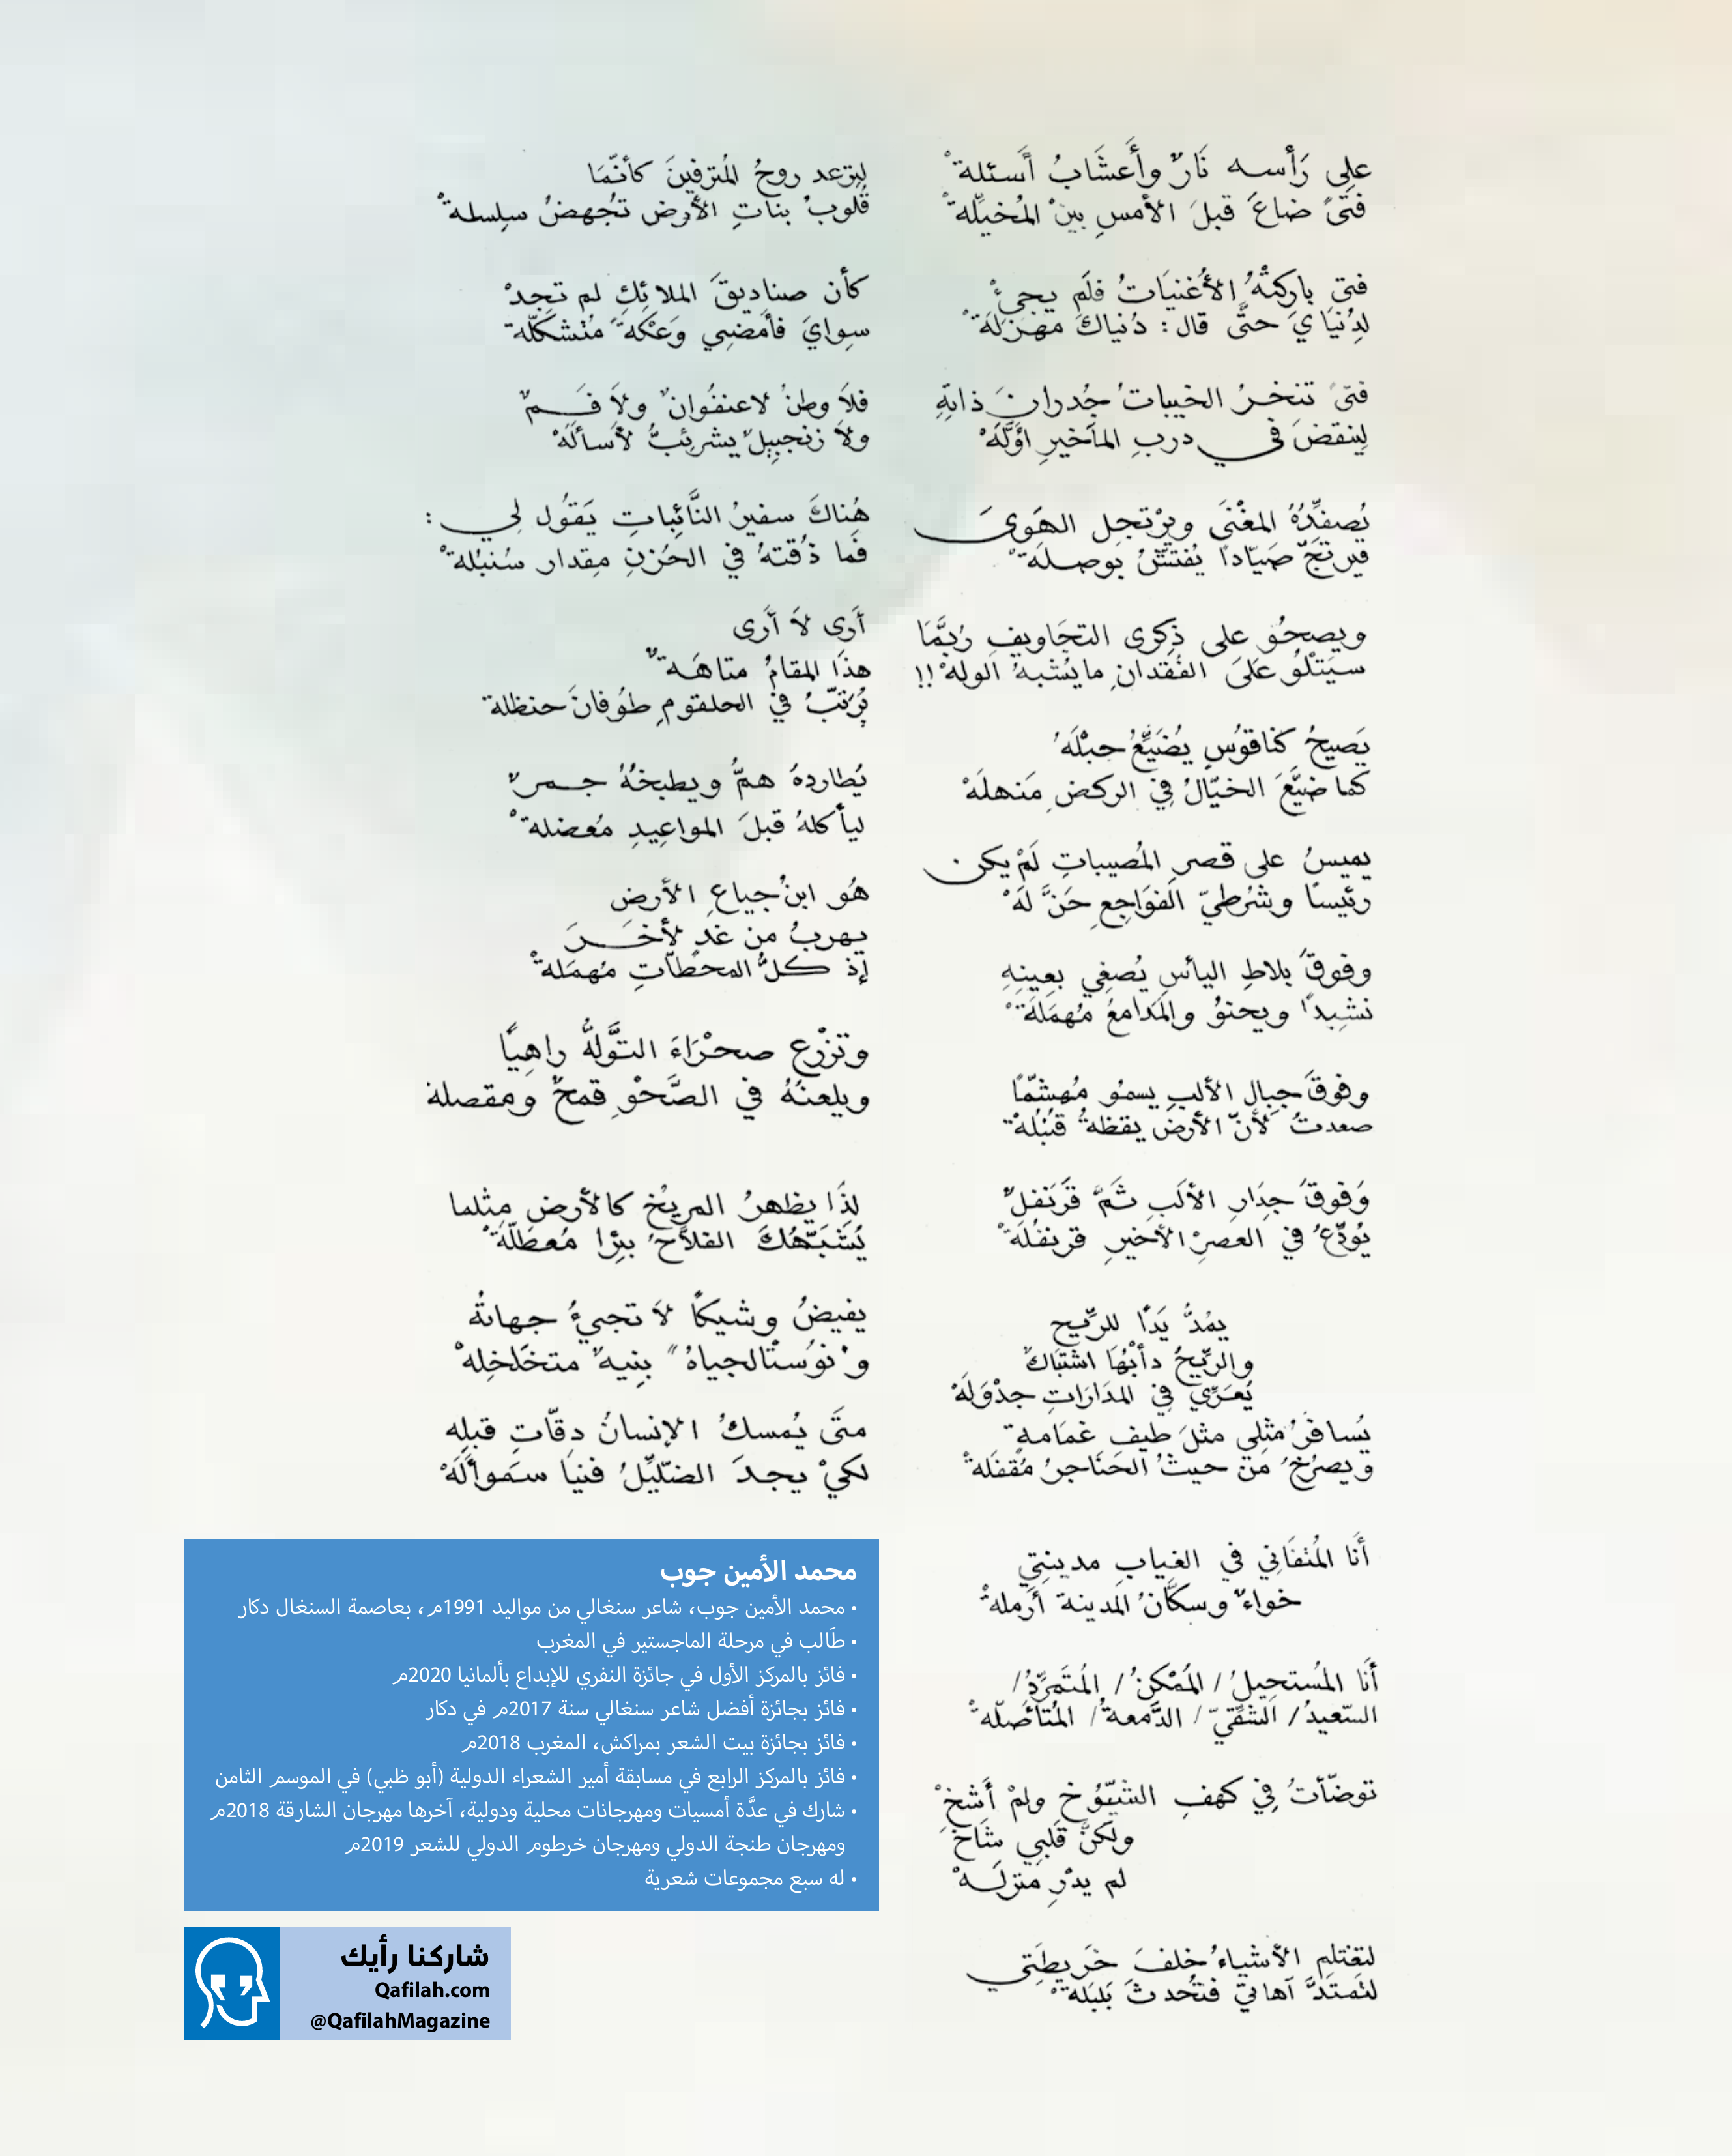 على رَأسه نَارٌ وأَعشَابُ أَسئلةْ
فتىً ضاعَ قبلَ الأمسِ بينْ المُخيّلةْ
فتى باركتْهُ الأُغنيَاتُ فلَم يجئْ
لِدُنيَايَ حتَّى قال: دُنياكَ مهزَلَةْ
فتىً تنخرُ الخيباتُ جُدرانَ ذاتِهِ
لِينقضَ في دربِ المآخيرِ أوَّلَهْ
يُصفِّدُهُ المغْنَى ويرْتجل الهَوىَ
فيرتجّ صَيّادًا يُفتّشُ بوصلَةْ
ويصحُو على ذِكرى التجَاويفِ رُبَّمَا
سيَتْلُو عَلَىَ الفُقدانِ مايُشبهُ الولهْ!!
يَصيحُ كنَاقوُسٍ يُضَيِّعُ حبْلَهُ
كما ضيَّعَ الخيّالُ فِي الركضِ مَنهلَهْ
يميسُ على قصرِ المُصيباتِ لَمْ يكن
رئيسًا وشُرطيّ الفوَاجِعِ حَنَّ لَهْ
وفوقَ بلاطِ اليأسِ يُصغِي بعينِهِ
نشيداً ويحنوُ والمَدامعُ مُهمَلَةْ
وفوقَ جبالِ الألبِ يسمُو مُهشّمًا
صعدتُ لأنّ الأرضَ يقظةُ قُنبُلةْ
وَفوقَ جِدَارِ الألَبِ ثَمَّ قَرَنفلٌ
يُودِّعُ في العصرِ الأخيرِ قرنفُلَةْ
يمُدُّ يَدًا للرِّيحِ
والرِّيحُ دأبُهَا اشتباكٌ
يُعَرِّي فِي المدَارَاتِ جدْوَلَهْ
يُسافرُ مثلِي مثلَ طيفِ غمَامةٍ
ويصرُخُ مَن حيثُ الحنَاجرُ مُقفلَةْ
أنَا المُتفَانِي في الغيابِ مدينتِي
خواءٌ وسكَّانُ المدينة أرملهْ
أنَا المُستحيلُ/ المُمْكنُ/ المُتَمرِّدُ/
السّعيدُ/ الشقّيّ/ الدَّمعةُ/ المُتأصّلهْ
توضّأتُ فِي كهفِ الشّيُوخِ ولمْ أشخْ
ولكنَّ قَلبِي شَاخَ
لم يدْرِ منزلَهْ
لتغتلم الأشياءُ خلفَ خَريطَتِي
لتمتدَّ آهاتي فتُحدثَ بَلبَلةْ
ليرتعد روحُ المُترفينَ كأنّمَا
قُلوبُ بناتِ الأرضِ تُجهضُ سلِسلةْ
كأن صناديقَ الملائكِ لم تجدْ
سِوايَ فأمضِي وَعْكةً مُتشكّلة
فلاَ وطنٌ لاعنفُوانٌ ولاَ فَمٌ
ولاَ زنجبيلٌ يشرئبُّ لأسألَهْ
هُناكَ سفيرُ النَّائباتِ يَقوُل لِي:
فَما ذُقتهُ في الحُزنِ مِقدار سُنبُلةْ
أَرى لاَ أَرَى
هذَا المقامُ متاهَةٌ
تُرتبُّ فِي الحلقومِ طوُفانَ حنظلة
يُطاردهُ همٌّ ويطبخُهُ جمرٌ
ليأكلهُ قبلَ المواعيدِ مُعضلةْ
هُو ابنُ جياعِ الأرضِ
يهربُ من غدٍ لأخَرَ
إذ كلُّ المحطّاتِ مُهمَلةْ
وتزْرع صحْرَاءَ التَّولّهُ راهِبًا
ويلعنُهُ في الصَّحْوِ قمحٌ ومقصلة
لِذَا يظهرُ المريْخ كالأرضِ مِثلما
يُشَبّهُكَ الفلاَّحُ بئِرا مُعطّلَةْ
يفيضُ وشيكًا لاَ تجيءُ جهاتُهُ
و"نوُستالجياهُ" بِنيةٌ متخَلخِلهْ
متَى يُمسكُ الإنسانُ دقّاتِ قبلِه
لكيْ يجدَ الضلّيِلُ فنيَا سَموألَهْ
محمد الأمين جوب
• محمد الأمين جوب، شاعر سنغالي من مواليد 1991م، بعاصمة السنغال دكار
• طَالب في مرحلة الماجستير في المغرب
• فائز بالمركز الأول في جائزة النفري للإبداع بألمانيا 2020م
• فائز بجائزة أفضل شاعر سنغالي سنة 2017م في دكار
• فائز بجائزة بيت الشعر بمراكش، المغرب 2018م
• فائز بالمركز الرابع في مسابقة أمير الشعراء الدولية (أبو ظبي) في الموسم الثامن
• شارك في عدَّة أمسيات ومهرجانات محلية ودولية، آخرها مهرجان الشارقة 2018م
ومهرجان طنجة الدولي ومهرجان خرطوم الدولي للشعر 2019م
• له سبع مجموعات شعرية
شاركنا رأيك
Qafilah.com
@QafilahMagazine